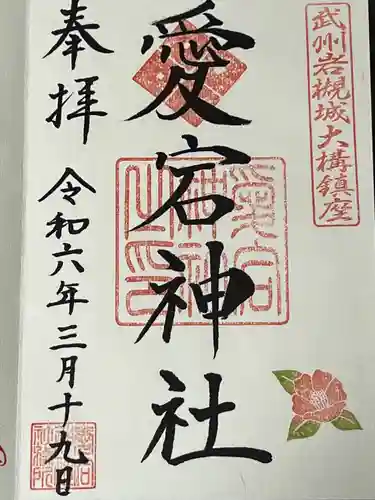 武州岩槻城大構鎮座
愛宕神社
奉拝
令和六年三月十九日